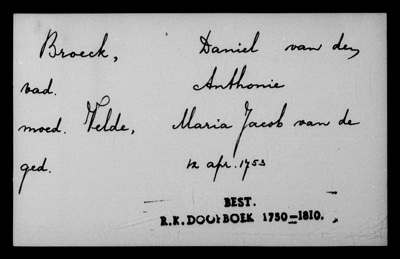 Broeck, Daniel van den
vad. Anthonie
moed. Velde, Maria Jacob van de
ged. 12 apr. 1753
BEST.
R.K. DOOPBOEK 1750-1810.